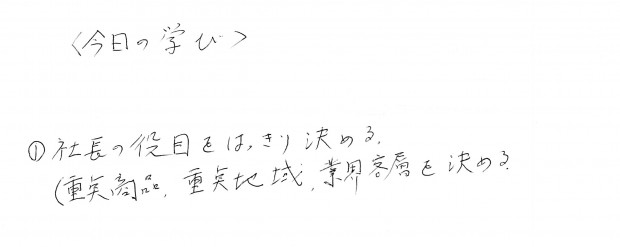 〈今日の学び〉
① 社長の役目をはっきり決める.
(重点商品, 重点地域, 業界客層を決める.